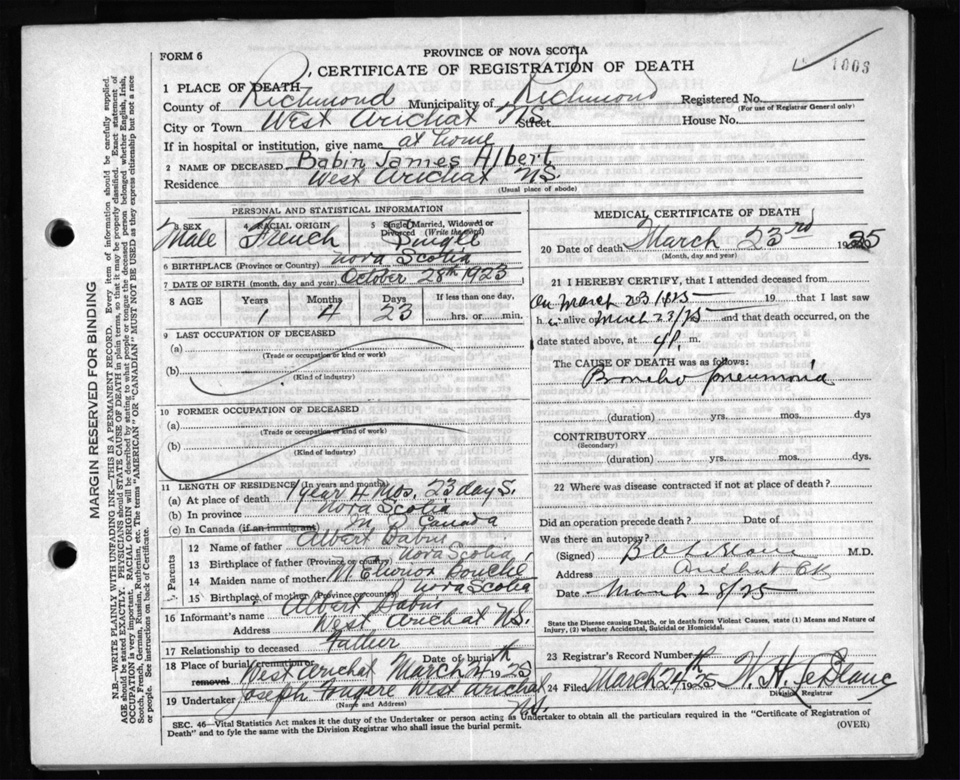 FORM 6
PROVINCE OF NOVA SCOTIA
CERTIFICATE OF REGISTRATION OF DEATH
1003
1 PLACE OF DEATH
County of Richmond Municipality of Richmond Registered No.
(For use of Registrar General only)
City or Town West Arichat NS Street House No.
If in hospital or institution, give name at home
2 NAME OF DECEASED Babin James Albert
Residence West Arichat NS.
(Usual place of abode)
PERSONAL AND STATISTICAL INFORMATION
3 SEX 4 RACIAL ORIGIN 5 Single, Married, Widowed or Divorced (Write the word)
Male French Single
6 BIRTHPLACE (Province or Country) Nova Scotia
7 DATE OF BIRTH (month, day and year) October 28th 1923
8 AGE Years Months Days If less than one day,
1 4 23 hrs. or min.
9 LAST OCCUPATION OF DECEASED
(a)
(Trade or occupation or kind or work)
(b)
(Kind of industry)
10 FORMER OCCUPATION OF DECEASED
(a)
(Trade or occupation or kind of work)
(b)
(Kind of industry)
11 LENGTH OF RESIDENCE (In years and months)
(a) At place of death 1 year 4 Mos. 23 days.
(b) In province Nova Scotia
(c) In Canada (if an immigrant) Canada
Parents
12 Name of father Albert Babin
13 Birthplace of father (Province or country) Nova Scotia
14 Maiden name of mother M Elionor
15 Birthplace of mother (Province or country) Nova Scotia
16 Informant's name Albert Babin
Address West Arichat NS.
17 Relationship to deceased Father
18 Place of burial, cremation or removal West Arichat Date of burial March 24th 1925
19 Undertaker Joseph Fougere West Arichat NS.
(Name and Address)
MEDICAL CERTIFICATE OF DEATH
20 Date of death March 23rd 1925
(Month, day and year)
21 I HEREBY CERTIFY, that I attended deceased from
On March 23/1925 19 that I last saw
h alive on March 23/25 and that death occurred, on
date stated above, at 4 P. m.
The CAUSE OF DEATH was as follows:
Broncho pneumonia
(duration) yrs. mos. dys
CONTRIBUTORY
(Secondary)
(duration) yrs. mos. dys.
22 Where was disease contracted if not at place of death?
Did an operation precede death? Date of
Was there an autopsy?
(Signed) M.D.
Address Arichat CB
Date March 28/25
State the Disease causing Death, or in death from Violent Causes, state (1) Means and Nature of
Injury, (2) whether Accidental, Suicidal or Homicidal.
23 Registrar's Record Number
24 Filed March 24th 1925 N. H. LeBlanc
Division Registrar
SEC. 46—Vital Statistics Act makes it the duty of the Undertaker or person acting as Undertaker to obtain all the particulars required in the "Certificate of Registration of
Death" and to fyle the same with the Division Registrar who shall issue the burial permit.
(OVER)
MARGIN RESERVED FOR BINDING
N.B.—WRITE PLAINLY WITH UNFADING INK—THIS IS A PERMANENT RECORD. Every item of information should be carefully supplied.
AGE should be stated EXACTLY. PHYSICIANS should STATE CAUSE OF DEATH in plain terms, so that it may be properly classified. Exact statement of
OCCUPATION is very important. RACIAL ORIGIN will be described by stating to what people or tongue the deceased person belonged whether English, Irish,
Scotch, French, German, Russian, Ruthenian, etc. The terms "AMERICAN" OR "CANADIAN" MUST NOT BE USED as they express citizenship but not a race
or people. See instructions on back of Certificate.